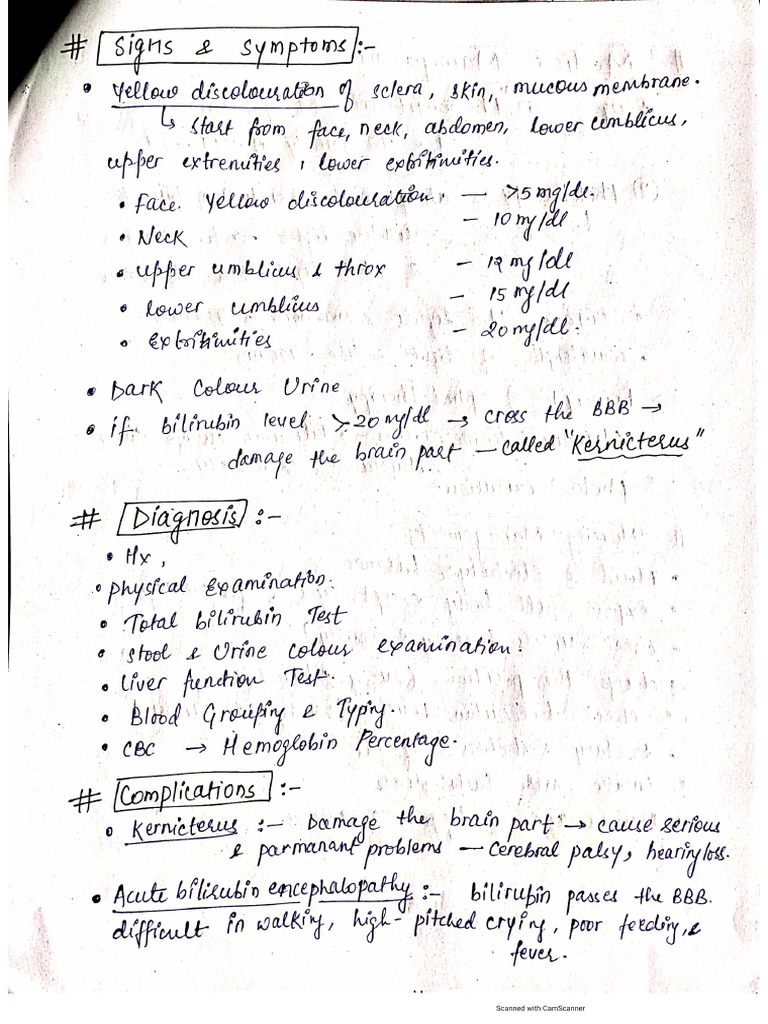 # Signs & Symptoms :-
• Yellow discolouration of sclera, skin, mucous membrane.
↳ start from face, neck, abdomen, lower umblicus,
upper extrenuities, lower extritimities.
• Face yellow discolouration. — >5 mg/dl.
• Neck - 10 mg/dl
• upper umblicus & throx - 12 mg/dl
• lower umblicus - 15 mg/dl
• Extritimities - 20 mg/dl.
• Dark Colour Urine
• if bilirubin level >20 mg/dl → cross the BBB →
damage the brain part — called "Kernicterus"
# Diagnosis :-
• Hx,
• Physical Examination.
• Total bilirubin Test
• Stool & Urine Colour examination.
• Liver function Test.
• Blood Grouping & Typing.
• CBC → Hemoglobin Percentage.
# Complications :-
• Kernicterus :- Damage the brain part → cause serious
& parmanant problems — cerebral palsy, hearing loss.
• Acute bilirubin encephalopathy :- bilirubin passes the BBB.
difficult in walking, high-pitched crying, poor feeding, &
fever.
Scanned with CamScanner